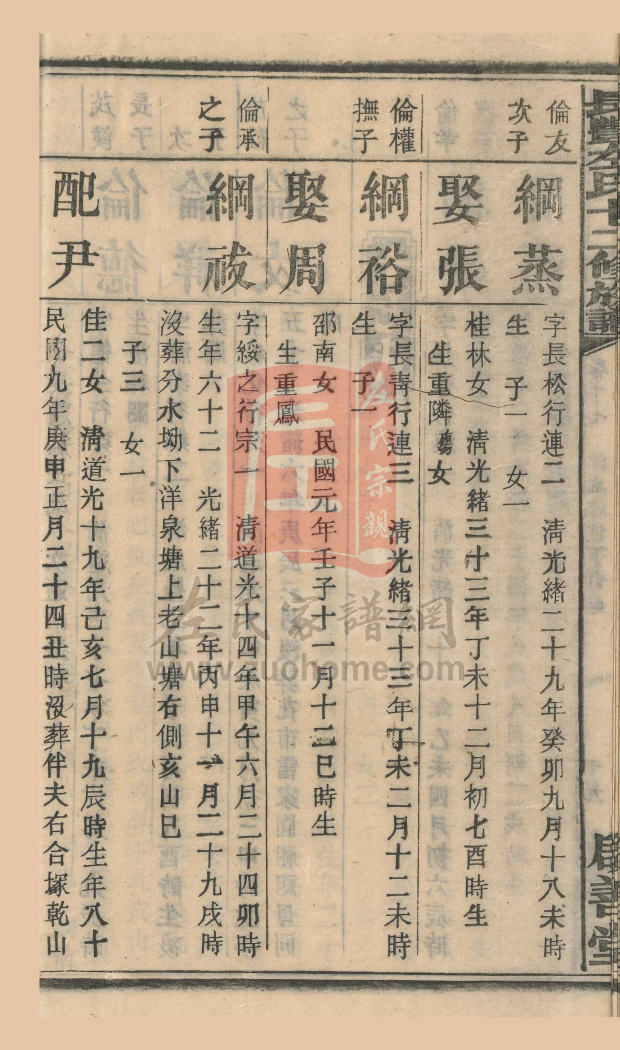 長豐左氏十二修族譜
善堂
倫友
次子
綱蒸
字長松行連二 清光緒二十九年癸卯九月十八未時
生 子一 女一
娶張
桂林女 清光緒三十三年丁未十二月初七酉時生
生重隣
女
倫權
撫子
綱裕
字長青行連三 清光緒三十三年丁未二月十二未時
生 子一
娶周
邵南女 民國元年壬子十一月十二巳時生
生重鳳
倫承
之子
綱祓
字綏之行宗一 清道光十四年甲午六月二十四卯時
生年六十二 光緒二十二年丙申十一月二十九戌時
沒葬分水坳下洋泉塘上老山塘右側亥山巳
子三 女一
配尹
佳二女 清道光十九年己亥七月十九辰時生年八十
民國九年庚申正月二十四丑時沒葬伴夫右合塚乾山
左氏宗親
左氏家譜網
www.zuohome.com